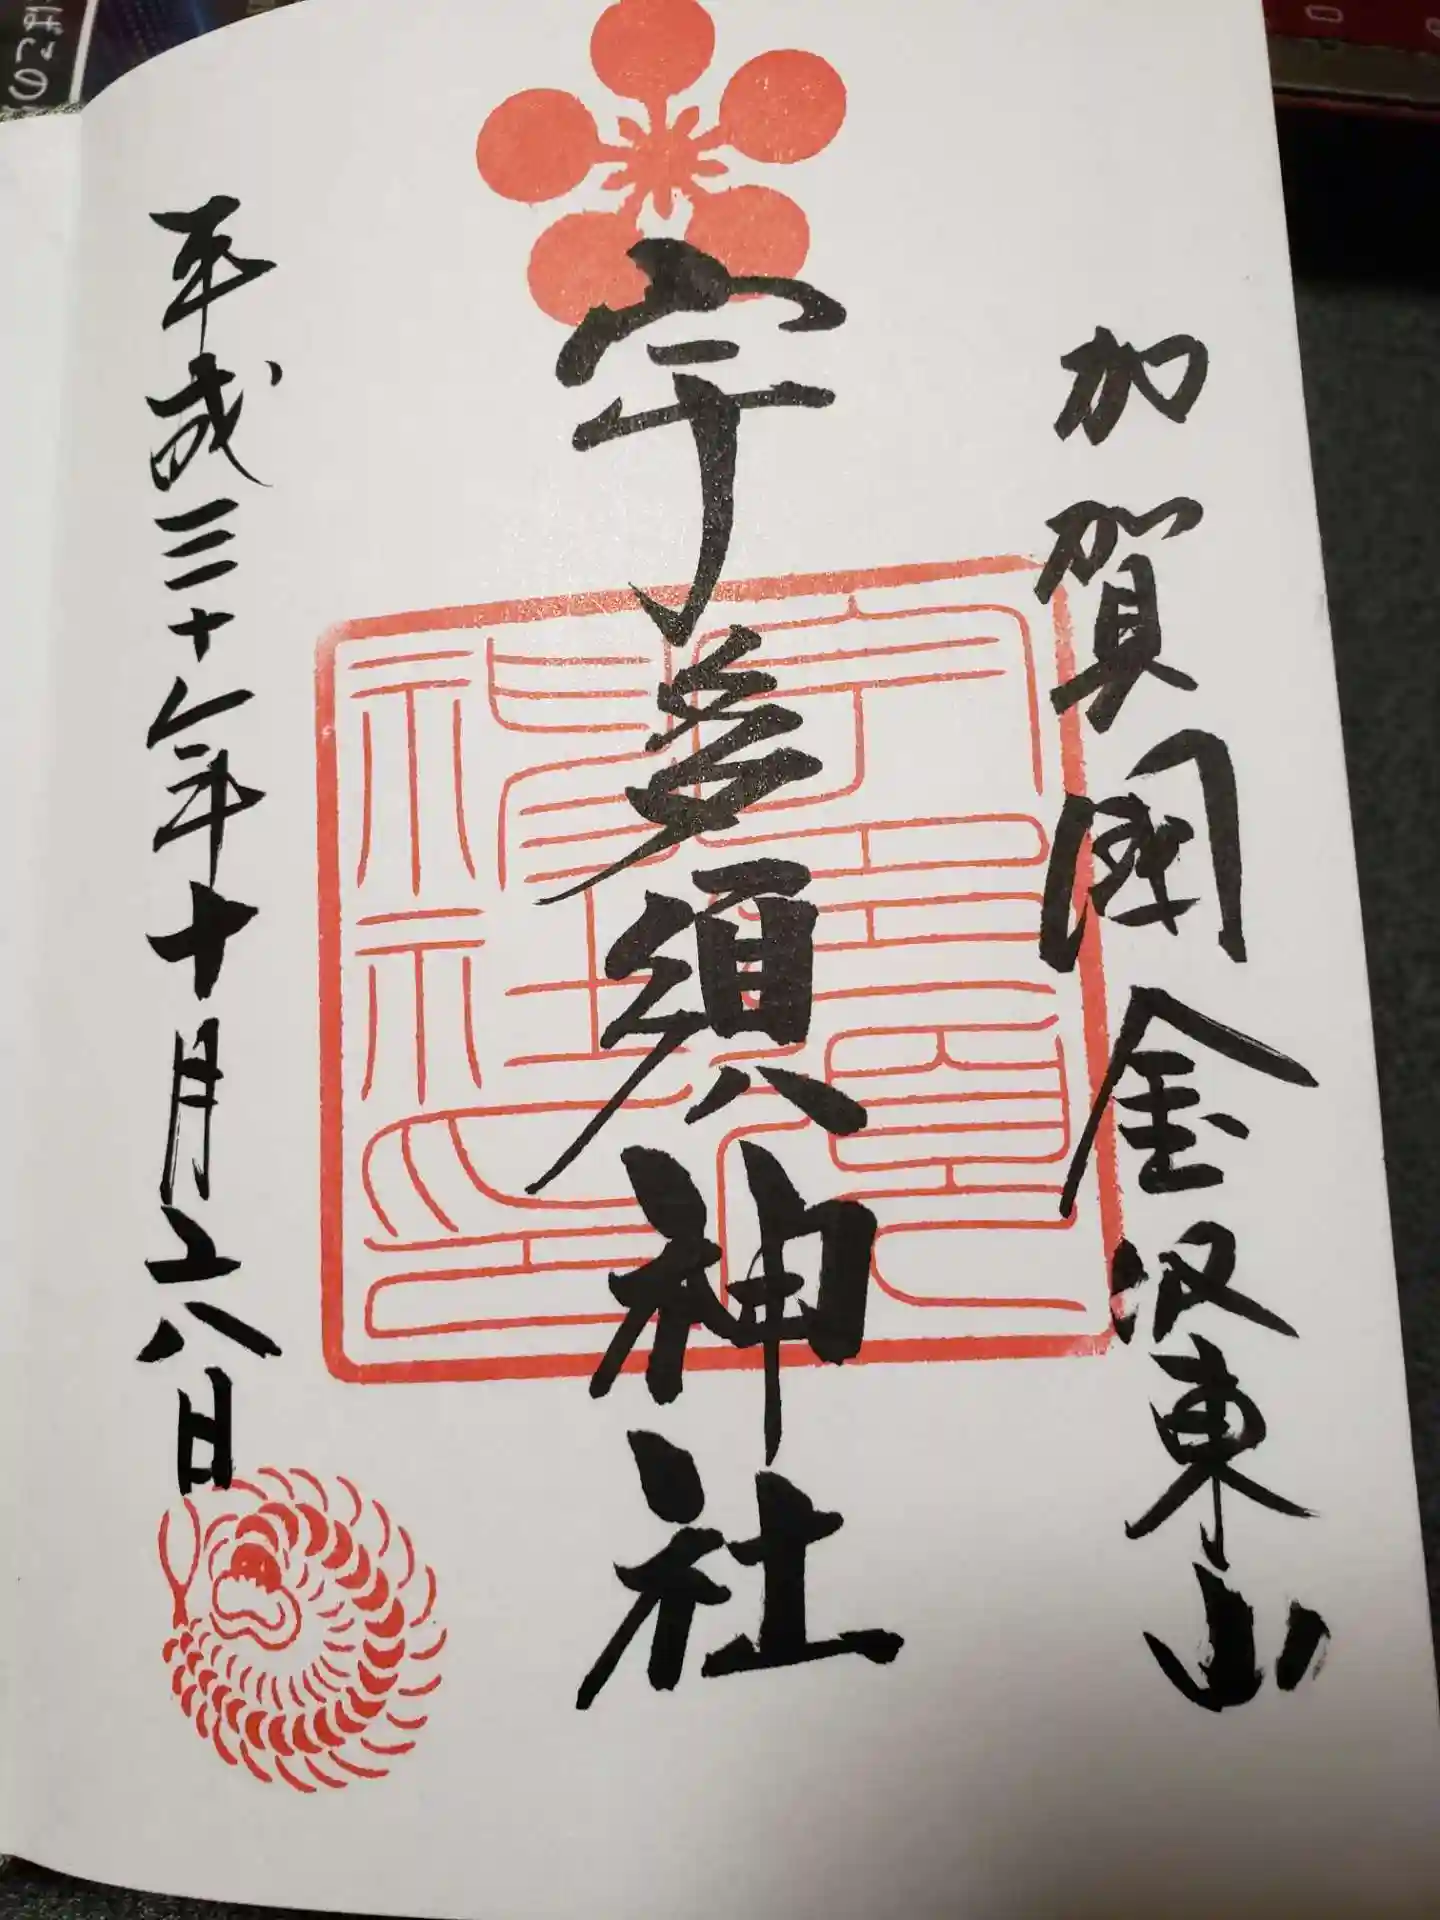 加賀國金沢東山
宇多須神社
平成三十年十月二八日
ばこの